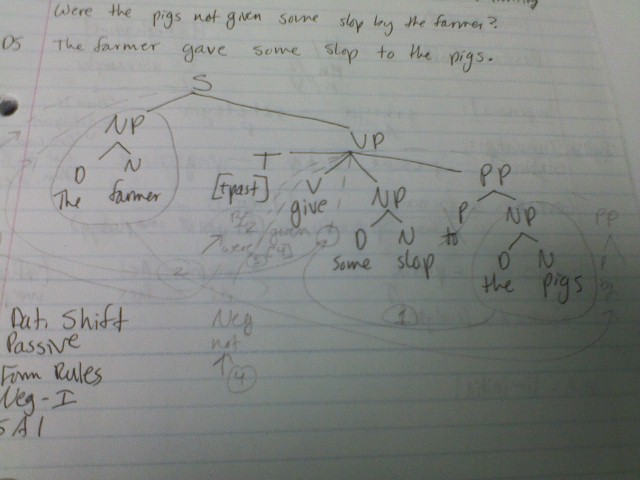 Were the pigs not given some slop by the farmer?
DS The farmer gave some slop to the pigs.
S
NP VP
T PP
D N [+past] V NP P NP
The farmer give D N to D N
some slop the pigs
were given
PP
P
by
2 1
Dat. Shift Neg
Passive not
Form Rules 4
Neg-I
SAI